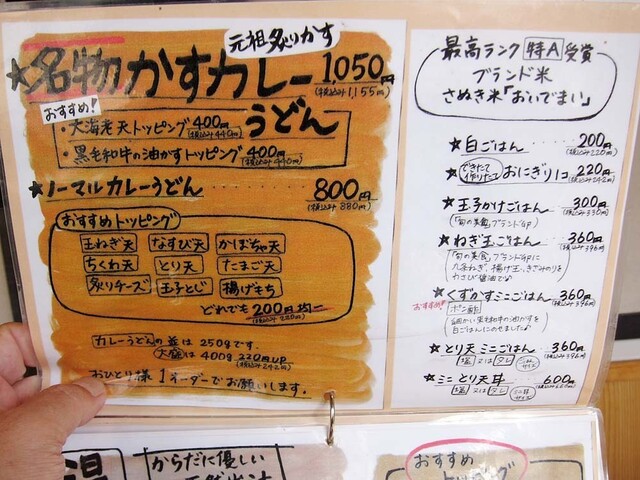 元祖炙りかす
★名物かすカレーうどん 1,050円
(税込み1,155円)
おすすめ!
・大海老天トッピング 400円
(税込み440円)
・黒毛和牛の油かすトッピング 400円
(税込み440円)
★ノーマルカレーうどん 800円
(税込み880円)
おすすめトッピング
玉ねぎ天 なすび天 かぼちゃ天
ちくわ天 とり天 たまご天
炙りチーズ 玉子とじ 揚げもち
どれでも200円均一
(税込み220円)
カレーうどんの並は250gです。
大盛は400g 220円UP
(税込み242円)
おひとり様1オーダーでお願いします。
最高ランク 特A 受賞
ブランド米
さぬき米「おいでまい」
★白ごはん 200円
(税込み220円)
★できたて作りたて おにぎり1コ 220円
(税込み242円)
★玉子かけごはん 300円
(税込み330円)
「旬の美食」ブランドeP
★ねぎ玉ごはん 360円
(税込み396円)
「旬の美食」ブランドePに
九条ねぎ、揚げ玉、きざみのりを
わさび醤油で
★くずかすミニごはん 360円
(税込み396円)
おすすめ!!
ポン酢
細かい黒毛和牛の油かすを
白ごはんにのせました
★とり天ミニごはん 360円
(税込み396円)
塩 又は タレ
★ミニとり天丼 600円
(税込み660円)
塩 又は タレ
からだに優しい
おすすめ
トッピング